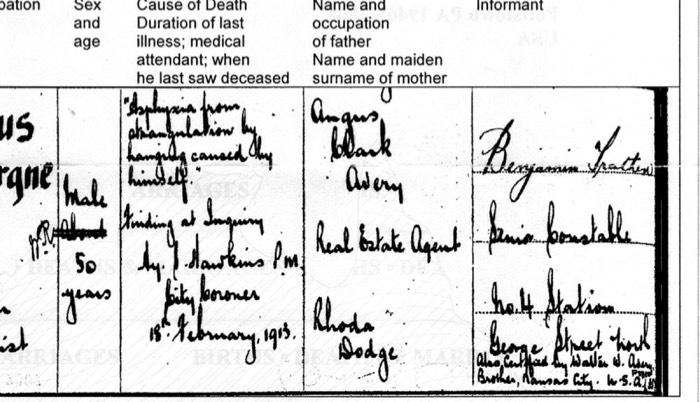 pation
Sex
and
age
Cause of Death
Duration of last
illness; medical
attendant; when
he last saw deceased
Name and
occupation
of father
Name and maiden
surname of mother
Informant
us
rgne
ist
Male
About
50
years
"Asphyxia from
strangulation by
hanging caused by
himself.
Finding at Inquiry
by Hawkins P.M.
City Coroner
18th February, 1913.
Angus
Clark
Avery
Real Estate Agent
Rhoda
Dodge
Benjamin
Senior Constable
No. 4 Station
George Street North
Also Certified by Walter W. Avery
Brother, Kansas City. U.S.A.